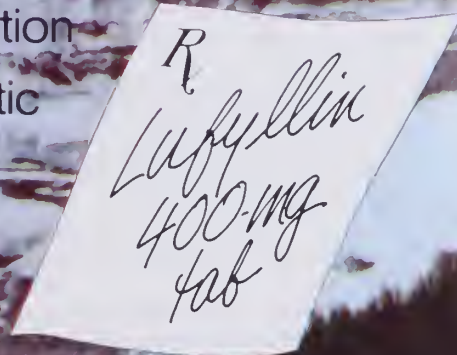 tion
tic
Rx
Lufyllin
400-mg
tab